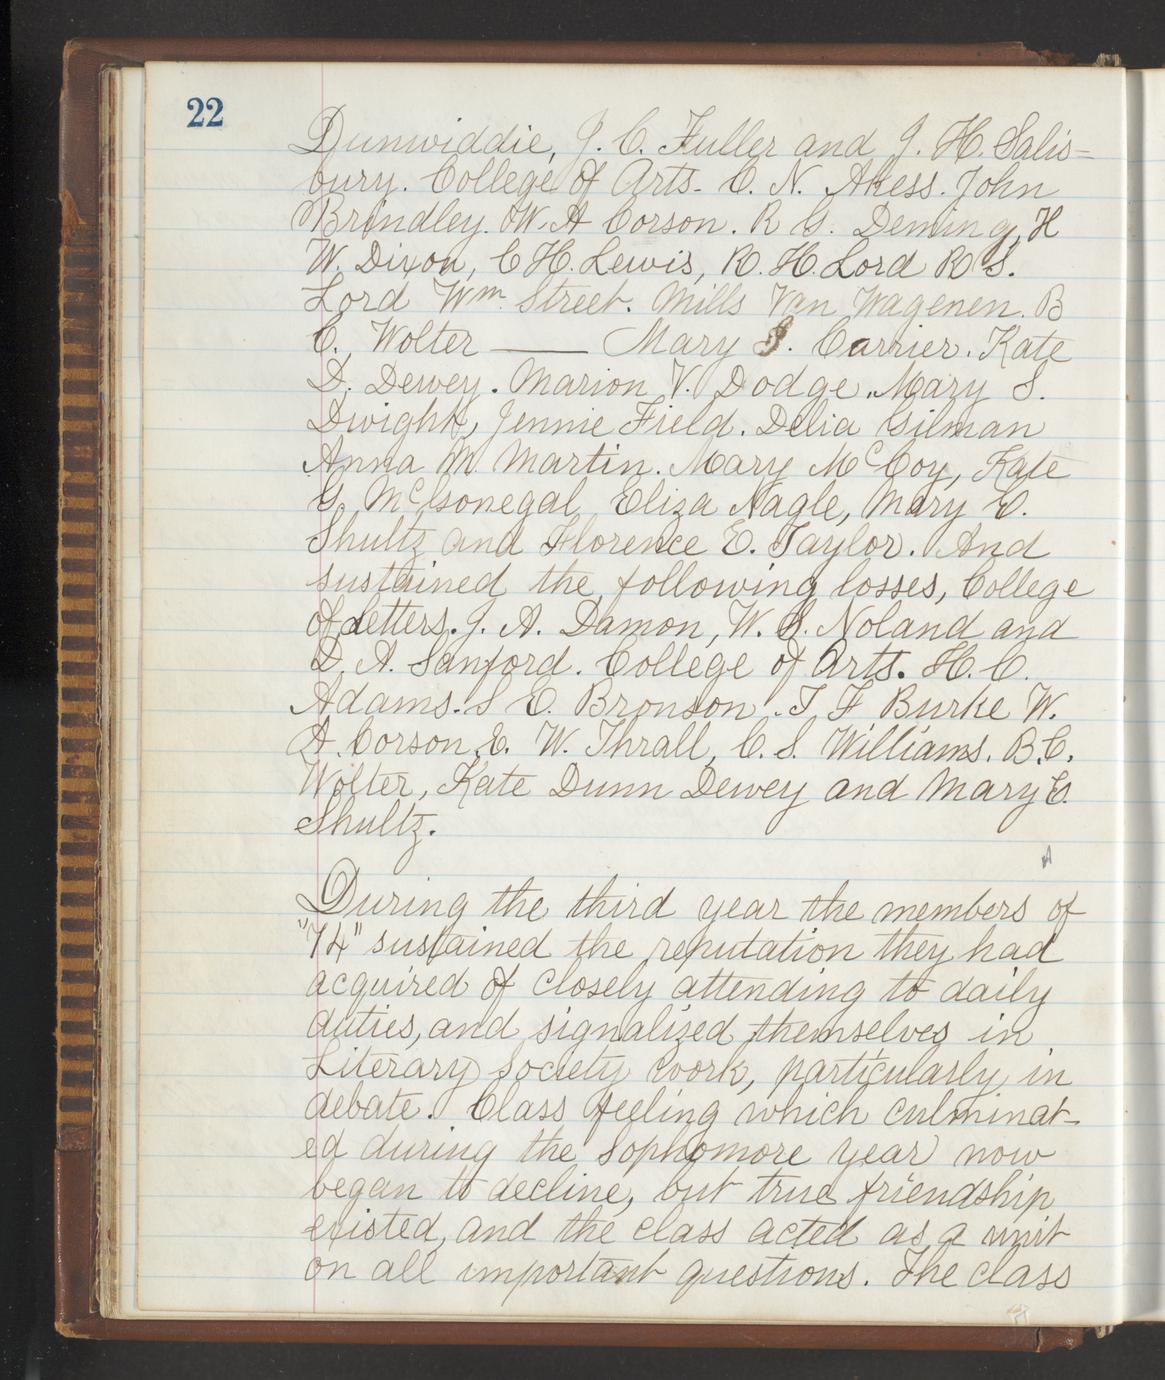 22
Dunwiddie, J. C. Fuller and J. H. Salis=
bury. College of Arts. C. N. Akess. John
Brindley. W. A Corson. R G. Deming, H
W. Dixon, C H. Lewis, R. H. Lord R S.
Lord Wm. Street. Mills Van Wagenen. B
C. Wolter —— Mary J. Carrier. Kate
D. Dewey. Marion V. Dodge. Mary S.
Dwight, Jennie Field. Delia Gilman
Anna M. Martin. Mary McCoy, Kate
G. McGonegal, Eliza Nagle, Mary E.
Shultz and Florence E. Taylor. And
sustained the following losses, College
of Letters. J. A. Damon, W. S. Noland and
D. A. Sanford. College of Arts. H. C.
Adams. S E. Bronson. T F Burke W.
A. Corson, E. W. Thrall, C. S. Williams. B. C.
Wolter, Kate Dunn Dewey and Mary E.
Shultz.
During the third year the members of
"74" sustained the reputation they had
acquired of closely attending to daily
duties, and signalized themselves in
Literary Society work, particularly in
debate. Class feeling which culminat-
ed during the Sophomore year now
began to decline, but true friendship
existed, and the class acted as a unit
on all important questions. The class